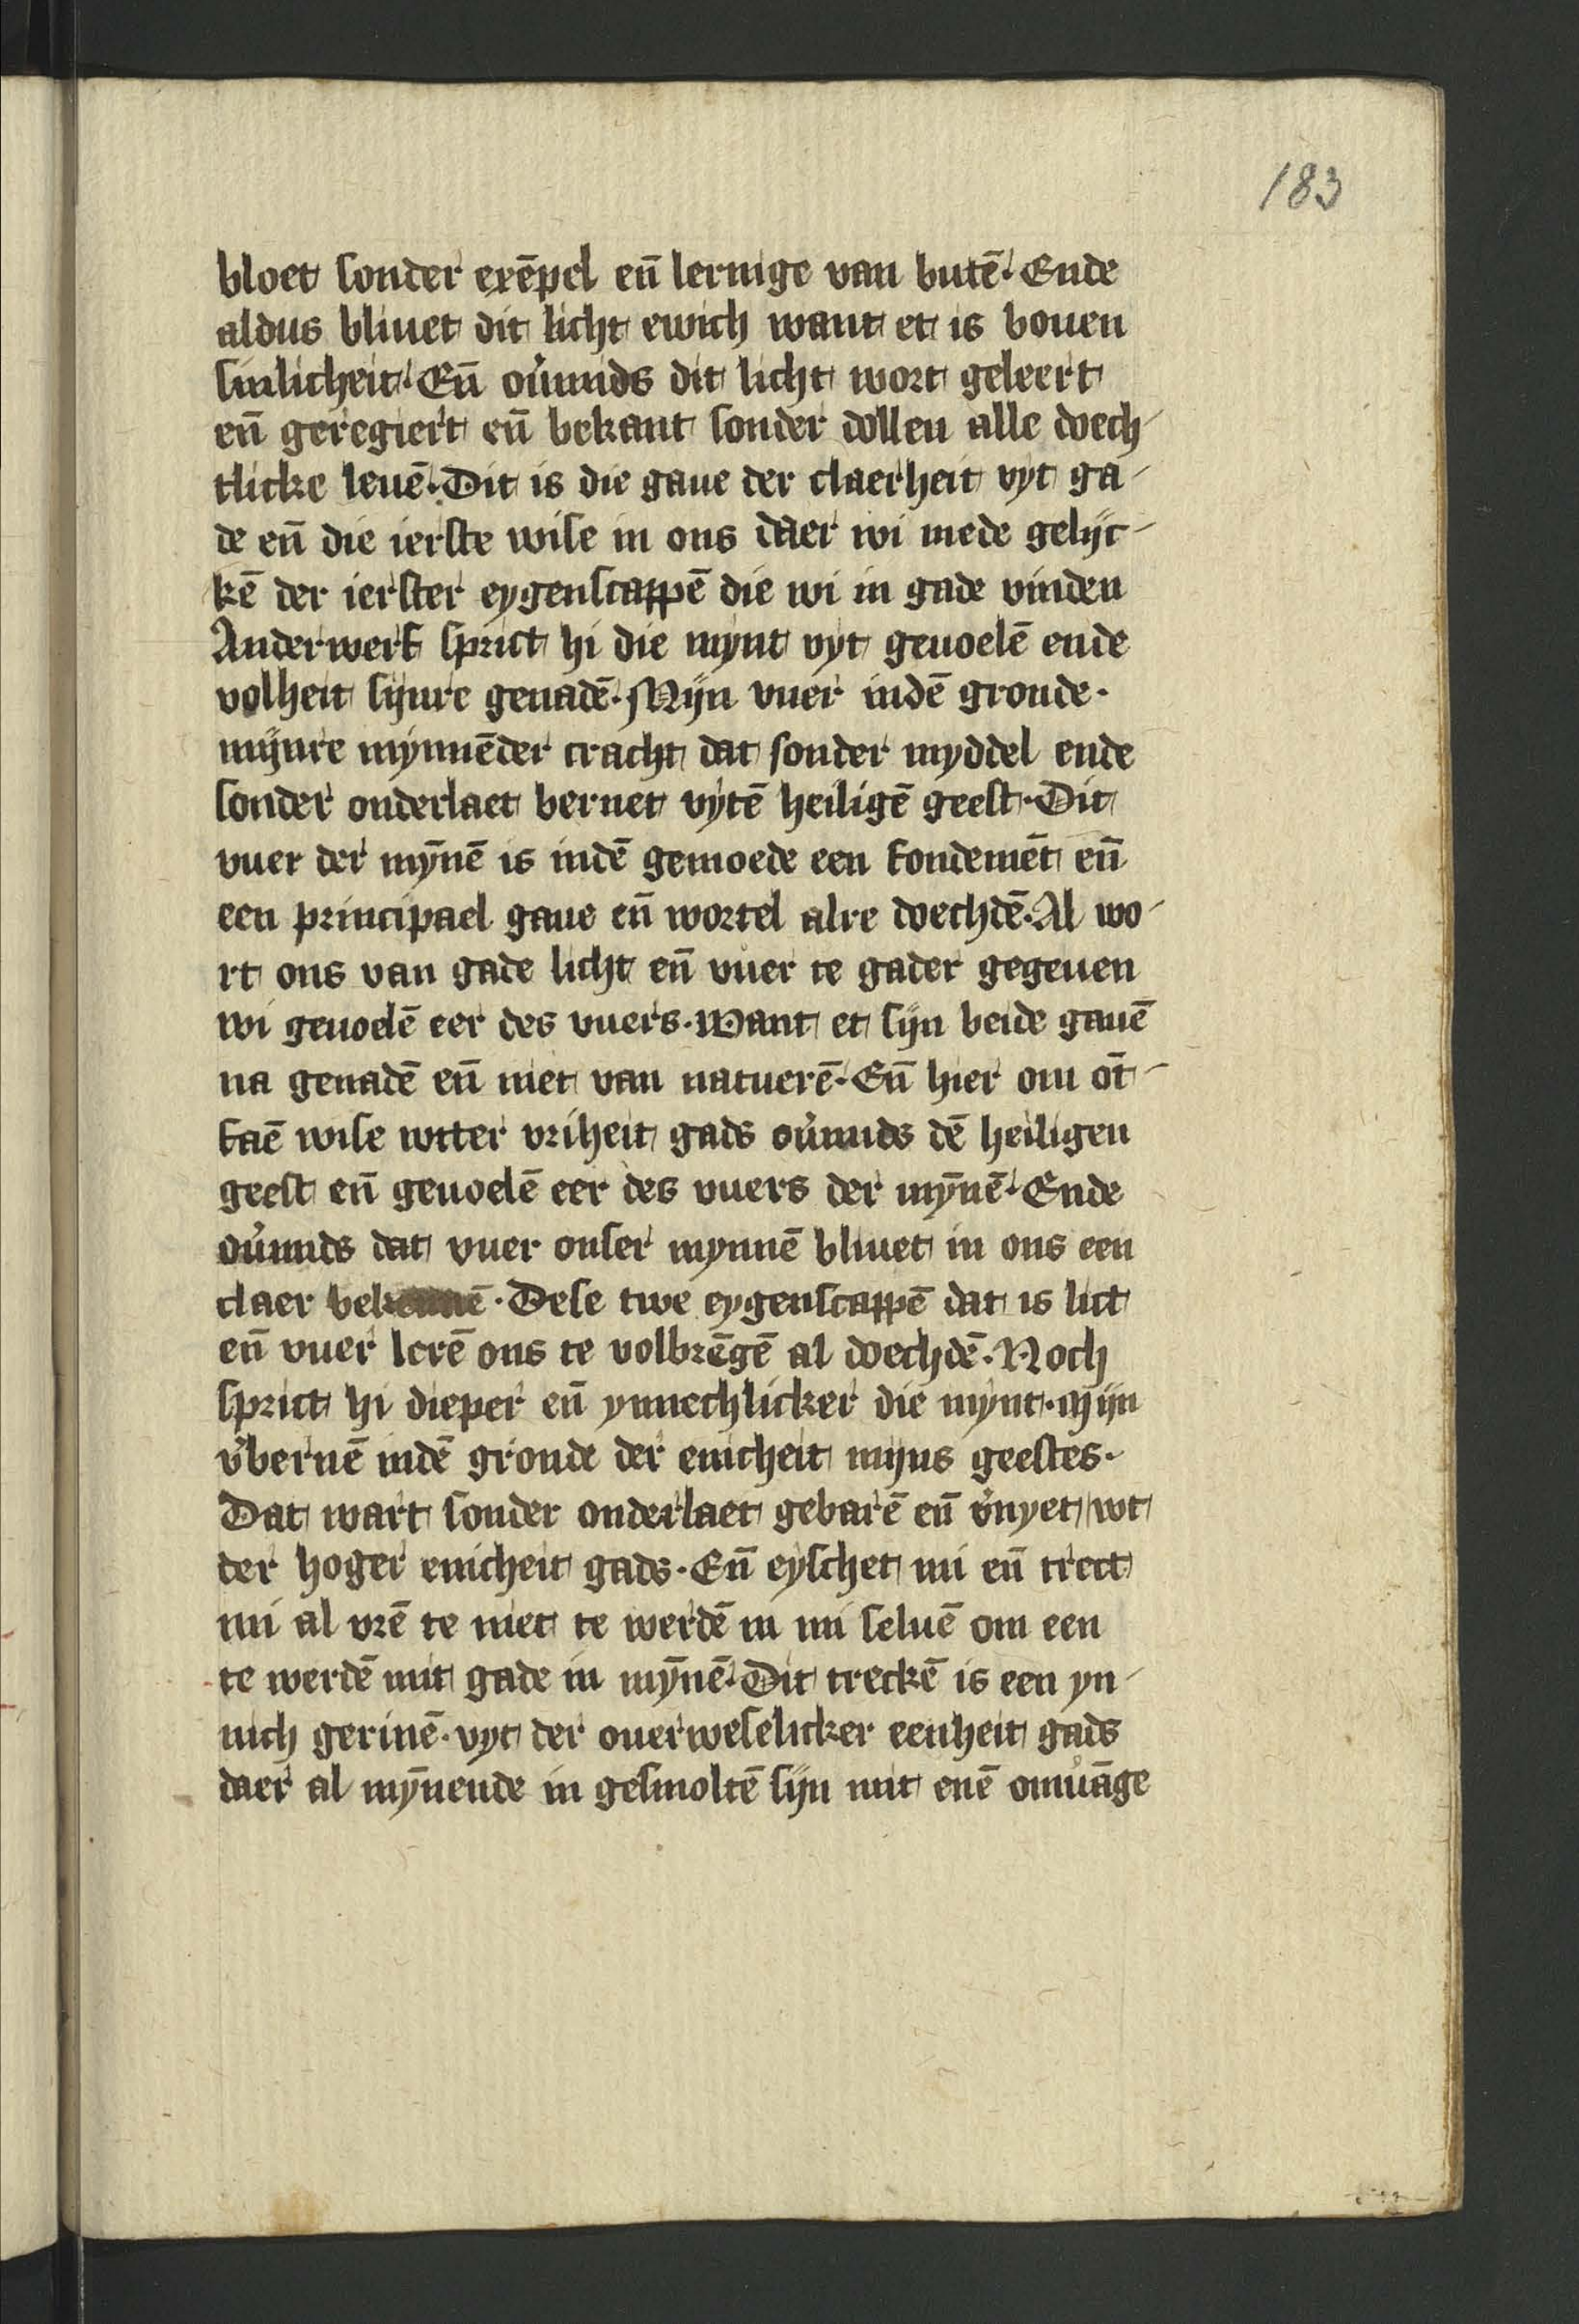 183
bloet sonder exēpel en̄ lernīge van butē. Ende
aldus bliuet dit licht ewich want et is bouen
sinlicheit. En̄ ou̓mids dit licht wort geleert
en̄ geregiert en̄ bekant sonder dollen alle doech-
tlicke leuē. Dit is die gaue der claerheit vyt ga-
de en̄ die ierste wise in ons daer wi mede gelijc-
kē der ierster eygenscappē die wi in gade vinden
Anderwerf sprict hi die mynt vyt geuoelē ende
volheit sijnre genadē. Mijn vuer indē gronde.
mijnre mynnēder cracht dat sonder myddel ende
sonder onderlaet bernet vytē heiligē geest. Dit
vuer der mȳnē is indē gemoede een fondemēt en̄
een principael gaue en̄ wortel alre doechdē. Al wo-
rt ons van gade licht en̄ vuer te gader gegeuen
wi geuoelē eer des vuers. Want et sijn beide gauē
na genadē en̄ niet van natuerē. En̄ hier om ōt-
faē wise wtter vriheit gads ou̓mids dē heiligen
geest en̄ geuoelē eer des vuers der mȳnē. Ende
ou̓mids dat vuer onser mynnē bliuet in ons een
claer bekennē. Dese twe eygenscappē dat is lict
en̄ vuer lerē ons te volbrēgē al doechdē. Noch
sprict hi dieper en̄ ynnechlicker die mynt. Mijn
v̓bernē indē gronde der enicheit mijns geestes.
Dat wart sonder onderlaet gebarē en̄ v̓nyet wt
der hoger enicheit gads. En̄ eyschet mi en̄ trect
mi al vrē te niet te werdē in mi seluē om een
te werdē mit gade in mȳnē. Dit treckē is een yn-
nich gerinē. vyt der ouerweselicker eenheit gads
daer al mȳnende in gesmoltē sijn mit enē omu̓āge